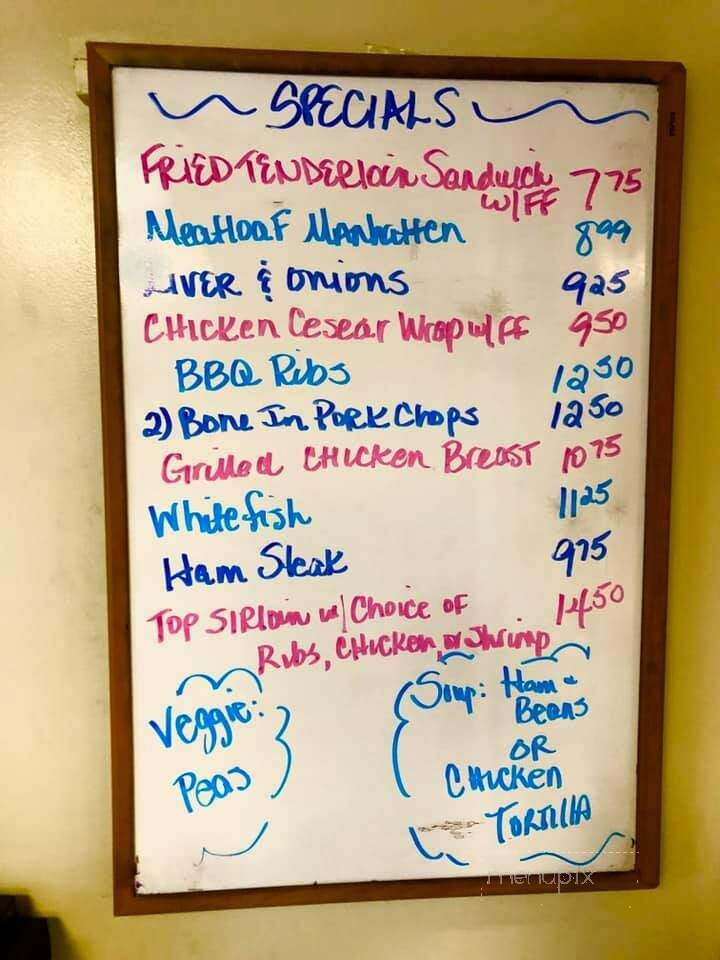 SPECIALS
FRIED TENDERloin Sandwich 7 75
w/FF
Meatloaf Manhatten 8 99
LIVER & Onions 9 25
CHICKEN Cesear Wrap w/FF 9 50
BBQ Ribs 12 50
2) Bone In PORK Chops 12 50
Grilled CHICKEN Breast 10 75
Whitefish 11 25
Ham Steak 9 75
TOP SIRloin w/ Choice OF 14 50
Ribs, CHICKEN, or Shrimp
Veggie:
Peas
Soup: Ham &
Beans
OR
CHICKEN
TORTILLA
menupix